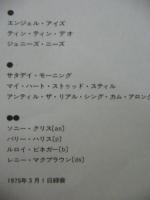 ●
エンジェル・アイズ
ティン・ティン・デオ
ジェニーズ・ニーズ
●
サタデイ・モーニング
マイ・ハート・ストゥッド・スティル
アンティル・ザ・リアル・シング・カム・アロング
●●
ソニー・クリス[as]
バリー・ハリス[p]
ルロイ・ビネガー[b]
レニー・マクブラウン[ds]
1975年3月1日録音